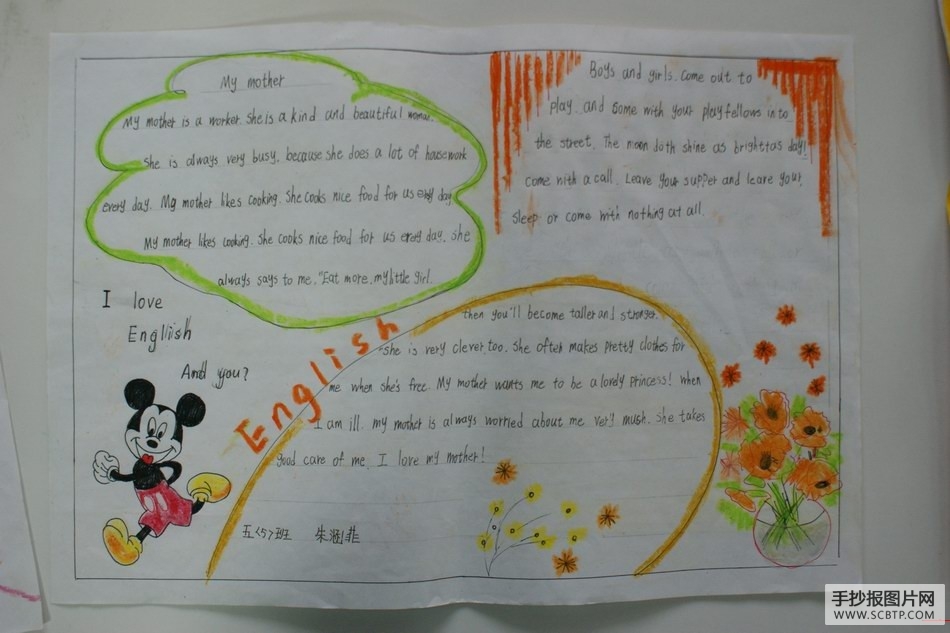 My mother
My mother is a worker. She is a kind and beautiful woman.
She is always very busy, because she does a lot of housework
every day. My mother likes cooking. She cooks nice food for us every day.
My mother likes cooking. She cooks nice food for us every day. She
always says to me, "Eat more, my little girl.
Boys and girls. Come out to
play. and Some with your playfellows into
the street. The moon doth shine as brighttas day!
Come with a call. Leave your supper and leave your
Sleep or come with nothing at all.
I love
English
And you?
English
then you'll become taller and stronger.
She is very clever, too. She often makes pretty clothes for
me when she's free. My mother wants me to be a lovely princess! When
I am ill. my mother is always worried about me very mush. She takes
good care of me. I love my mother!
五<5>班 朱涵菲
手抄报图片网
WWW.SCBTP.COM